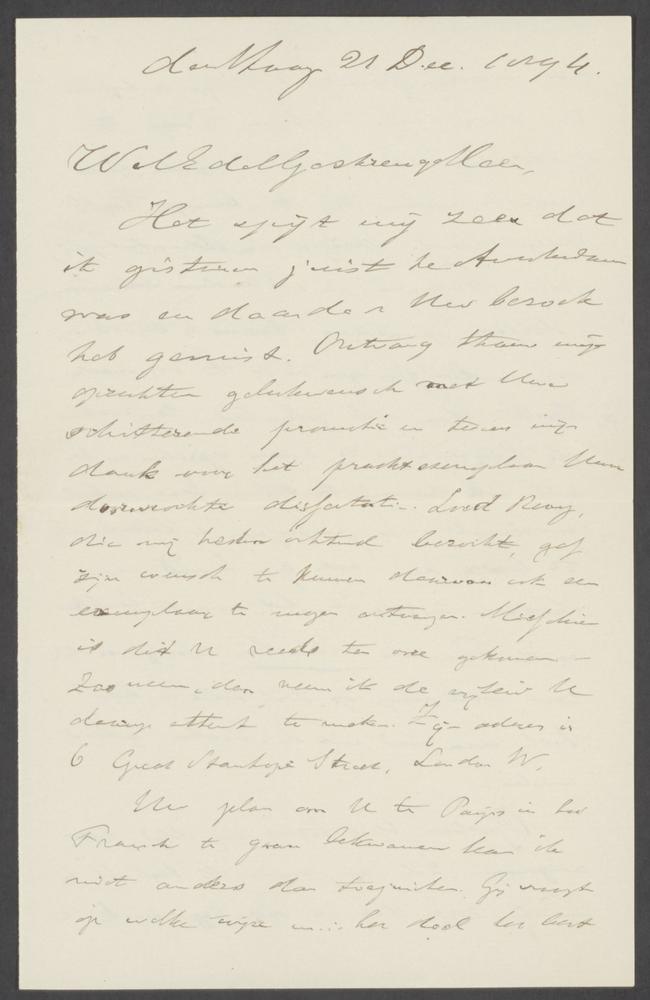 den Haag 21 Dec. 1894.
WelEdelGestrenge Heer,
Het spijt mij zeer dat
ik gisteren juist te Amsterdam
was en daardoor Uw bezoek
heb gemist. Ontvang thans mijn
oprechten gelukwensch met Uwe
schitterende promotie en tevens mijn
dank voor het prachtexemplaar Uwer
doorwrochte dissertatie. Lord Reay,
die mij heden ochtend bezocht, gaf
zijn wensch te kennen daarvan ook een
exemplaar te mogen ontvangen. Misschien
is dit U reeds ter oore gekomen –
Zoo neen, dan neem ik de vrijheid U
daarop attent te maken. Zijn adres is
6 Great Stanhope Street, London W.
Uw plan om U te Parijs in het
Fransch te gaan bekwamen kan ik
niet anders dan toejuichen. Gij vraagt
op welke wijze het doel het best